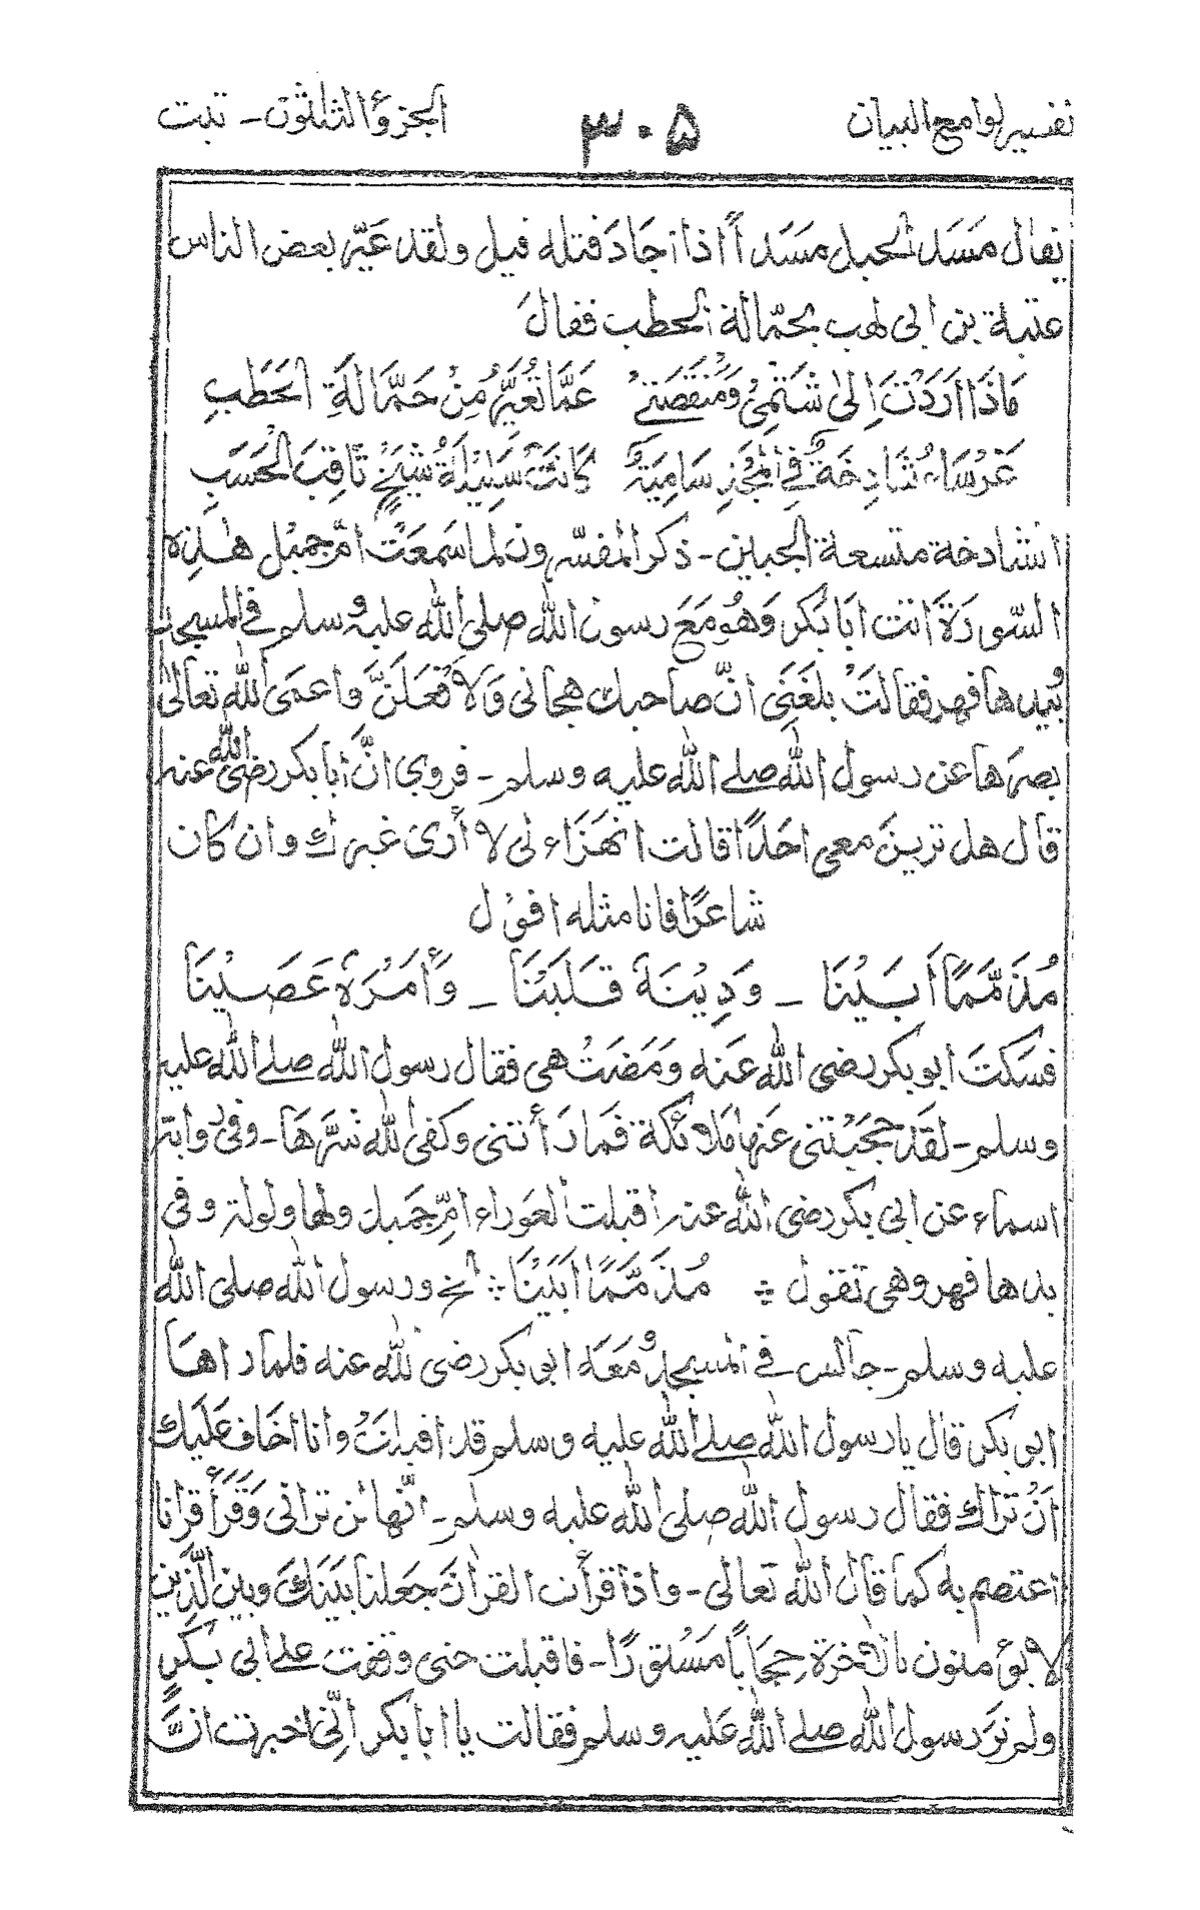 تفسير لوامع البيان ٣٠٥ الجزء الثلثون - تبت
يقال مَسَد الحبل مَسَداً اذا اجادَ فتله قيل ولقد عَيّر بعض الناس
عتبة بن ابى لهب بحمّالة الحطب فقالَ
مَاذَا اَرَدْتَ اِلىٰ شَتْمِىْ وَمَنْقَصَتِىْ عَمَّا تُعَيِّرُ مِنْ حَمَّالَةِ الْحَطَبِ
غَرَّاءُ شَادِخَةٌ فِي الْمَجْدِ سَامِيَةً كَانَتْ سَلِيْلَةَ شَيْخٍ ثَاقِبِ الْحَسَبِ
الشادخة متسعة الجبين - ذكر المفسّرون لما سَمعَتْ امّ جميْل هٰذِه
السّورَةَ اتت ابَا بَكر وَهُو مَعَ رسول الله صلى الله عليه وسلم فى المسجد
بُيدها فهر فقالتْ بلغَنَى انّ صاحبك هجانى وَلَافعَلَنَّ واعمى الله تعالىٰ
بصرها عن رسول الله صلے الله عليه وسلم - فروى انَّ ابا بكر رضى الله عنه
قال هل ترينَ معى احَدًا قالت اتهَزَاء لى لا أرىٰ غيرك وان كان
شاعرًا فانا مثله اقوْل
مُذَمَّمًا اَبَيْنَا - وَدِيْنَهٗ قَلَيْنَا - وَأَمْرَهٗ عَصَيْنَا
فسَكتَ ابو بكر رضى الله عَنه وَمَضَتْ هى فقال رسول الله صلے الله عليه
وسلم - لقَد حجبْتنى عَنها ملائكة فَما رَأتنى وكفى الله شَرَّهَا - وفى رواية
اسماء عن ابى بكر رضى الله عنه اقبلت العَوراء امّ جَميل ولها ولولة وفى
يدها فهر وهى تقول ؞ مُذَمَّمًا ابَيْنَا ؞ الخ ورسول الله صلى الله
عليه وسلم - جالس فى المسجد ومعَه ابى بكر رضى الله عنه فلما راهَا
ابى بكر قال يا رسول الله صلے الله عليه وسلم قد اقبلتْ وانا اخَاف عَلَيك
اَنْ تراك فقال رسول الله صلى الله عليه وسلم - انّها لن ترانى وَقَرَأَ قرانا
اعتصم به كما قال الله تعالى - واذا قرأت القراٰنَ جَعلنا بيْنكَ وبين الَّذِين
لا يؤمنون بالاخرة حِجَابًا مَسْتورًا - فاقبلت حتى وقفت علے ابى بَكرٍ
ولم ترَ رسول الله صلے الله عليه وسلم فقالت يا ابا بكر انّى اخبرت انّ